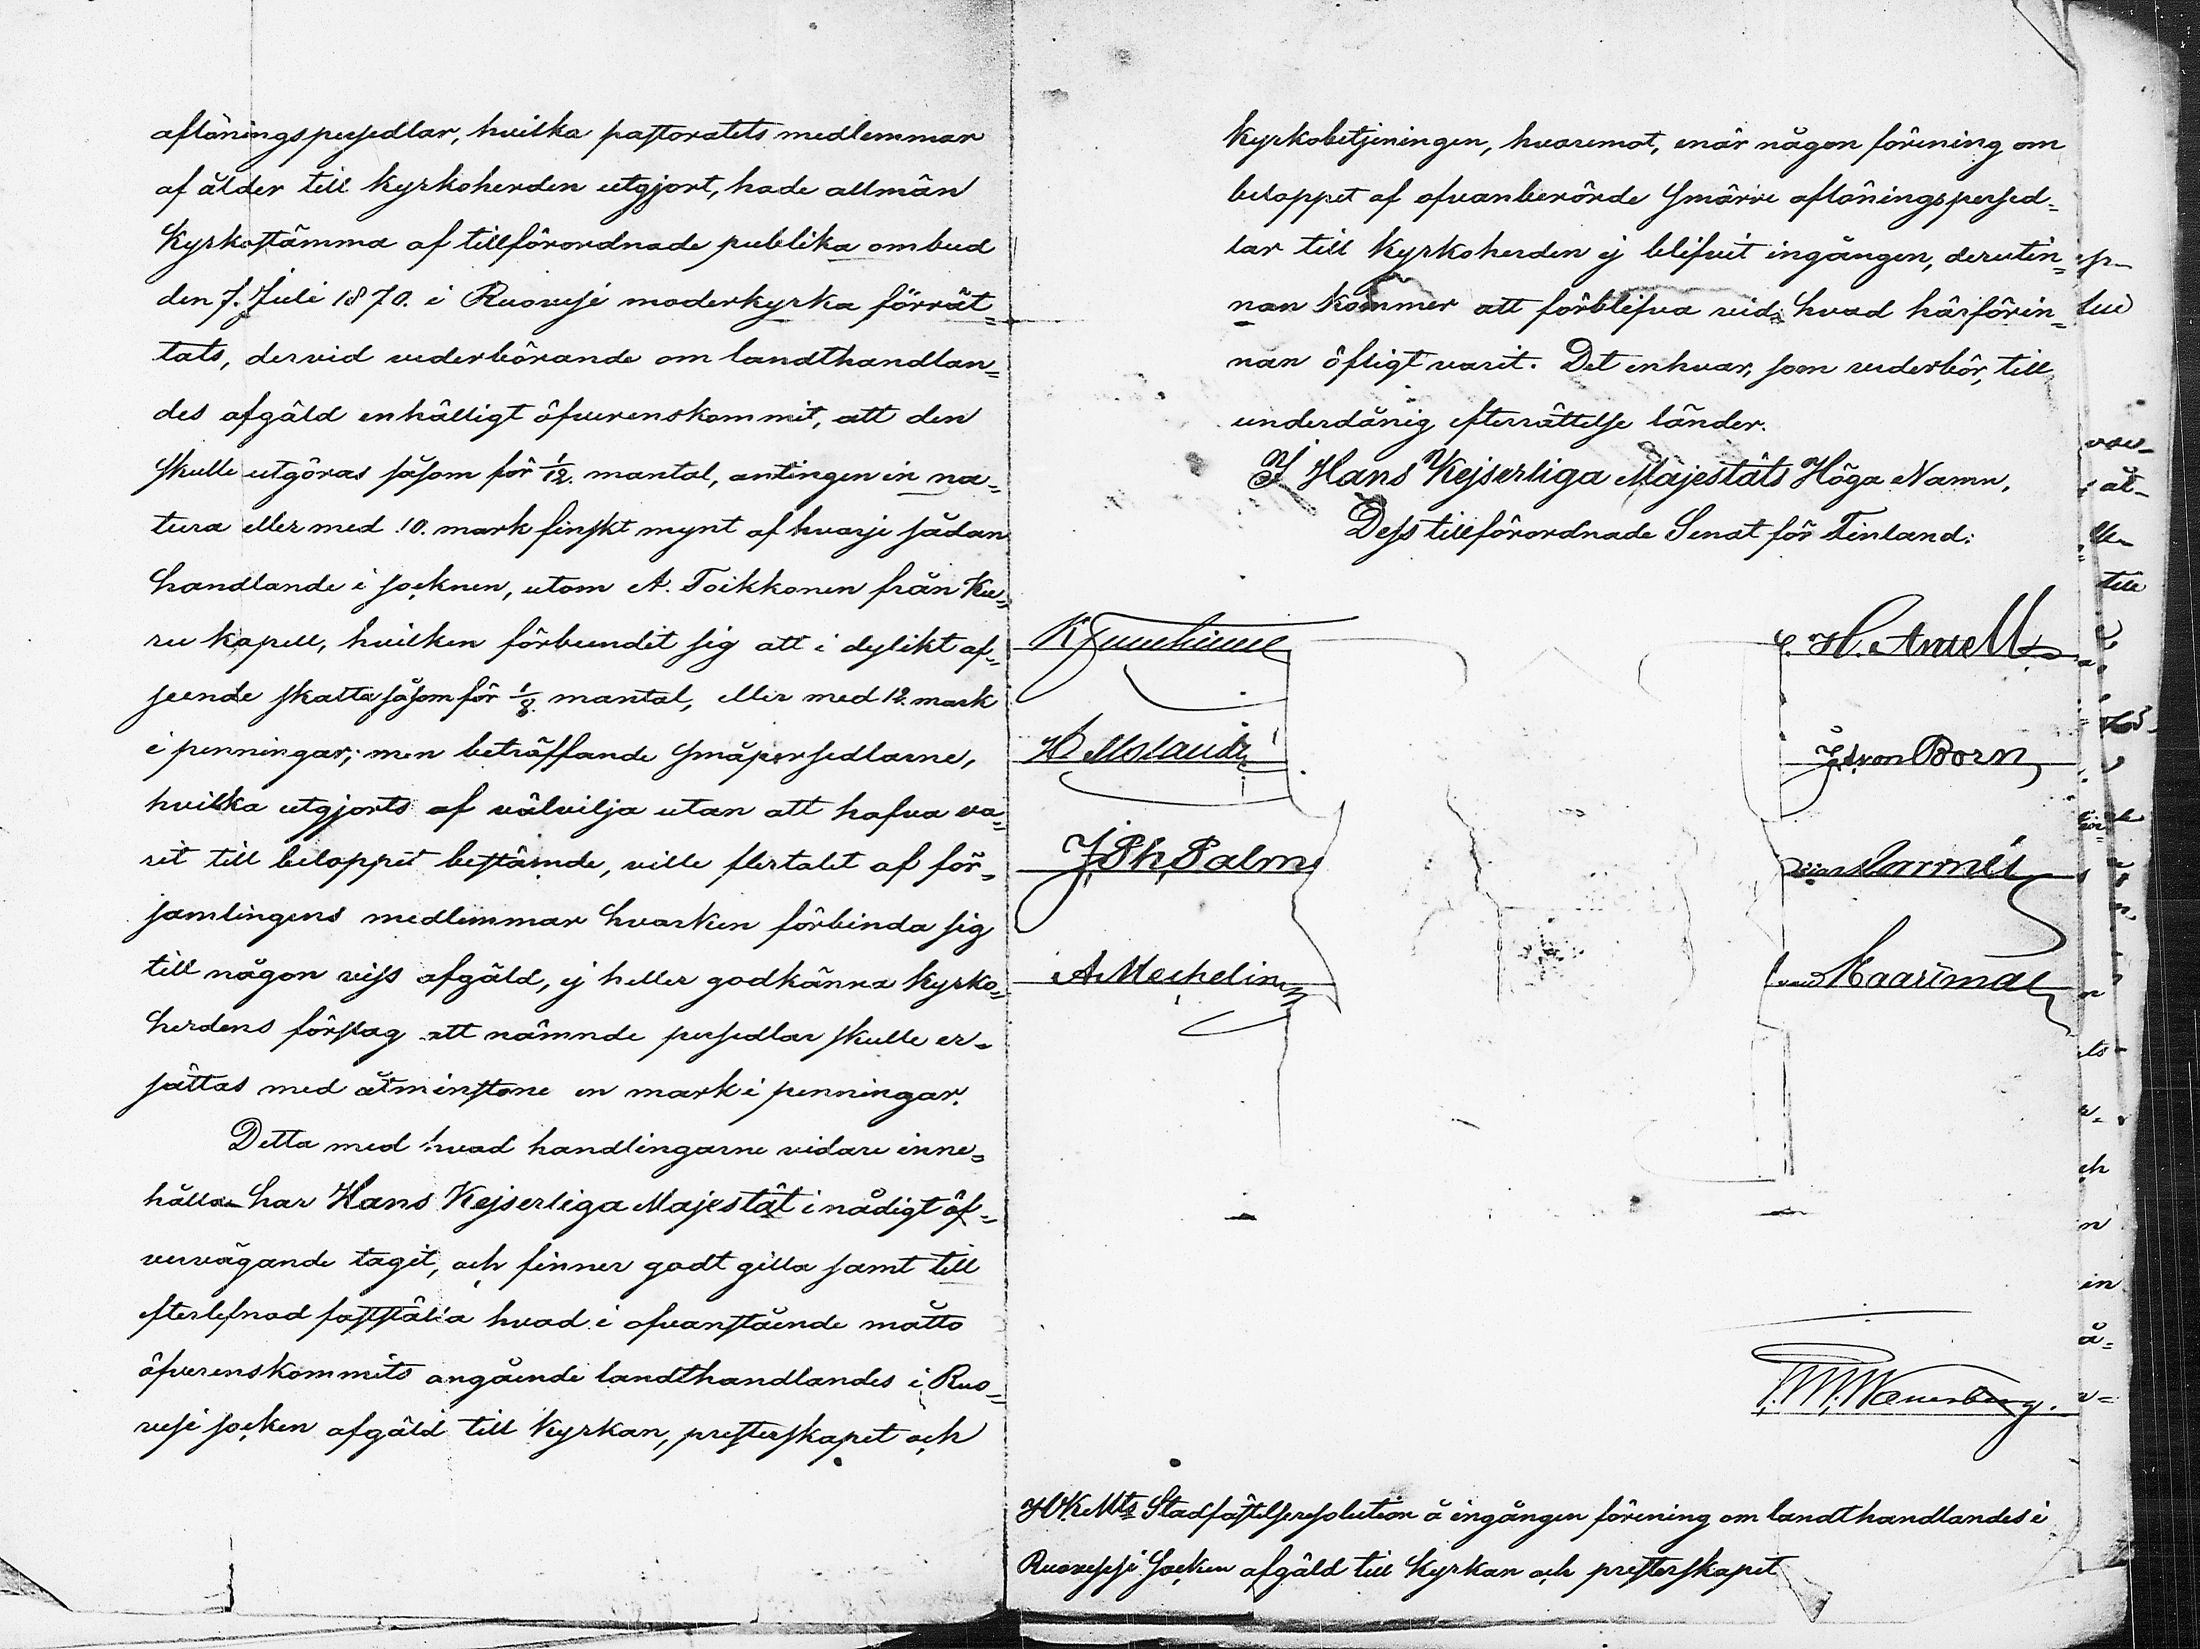 aflöningspersedlar, hvilka pastoratets medlemmar
af ålder till Kyrkoherden utgjort, hade allmän
Kyrkostämma af tillförordnade publika ombud
den 7. Juli 1870. i Ruovesi moderkyrka förrät=
tats, dervid vederbörande om landthandlan=
des afgäld enhälligt öfverenskommit, att den
skulle utgöras såsom för 1/12. mantal, antingen in na=
tura eller med 10. mark finskt mynt af hvarje sådan
handlande i socknen, utom A. Toikkonen från Ku=
ru kapell, hvilken förbundit sig att i dylikt af=
seende skatta såsom för 1/8 mantal, eller med 12. mark
i penningar; men beträffande småpersedlarne,
hvilka utgjorts af välvilja utan att hafva va=
rit till beloppet bestämde, ville flertalet af för=
samlingens medlemmar hvarken förbinda sig
till någon viss afgäld, ej heller godkänna Kyrko=
herdens förslag att nämnde persedlar skulle er=
sättas med åtminstone en mark i penningar.
Detta med hvad handlingarne vidare inne=
hålla har Hans Kejserliga Majestät i nådigt öf=
vervägande tagit, och finner godt gilla samt till
efterlefnad fastställa hvad i ofvanstående måtto
öfverenskommits angående landthandlandes i Ruo=
vesi socken afgäld till Kyrkan, presterskapet och
Kyrkobetjeningen, hvaremot, enär någon förening om
beloppet af ofvanberörde smärre aflöningspersed=
lar till Kyrkoherden ej blifvit ingången, derutin=
nan kommer att förblifva vid hvad härförin=
nan öfligt varit. Det enhvar, som vederbör, till
underdånig efterrättelse länder.
I Hans Kejserliga Majestäts Höga Namn,
Dess tillförordnade Senat för Finland:
C. H. Antell
H Molander
J. A. von Born
J. Ph. Palmn
A. Mechelin
HKMts Stadfästelseresolution å ingången förening om landthandlandes i
Ruovesi Socken afgäld till Kyrkan och presterskapet